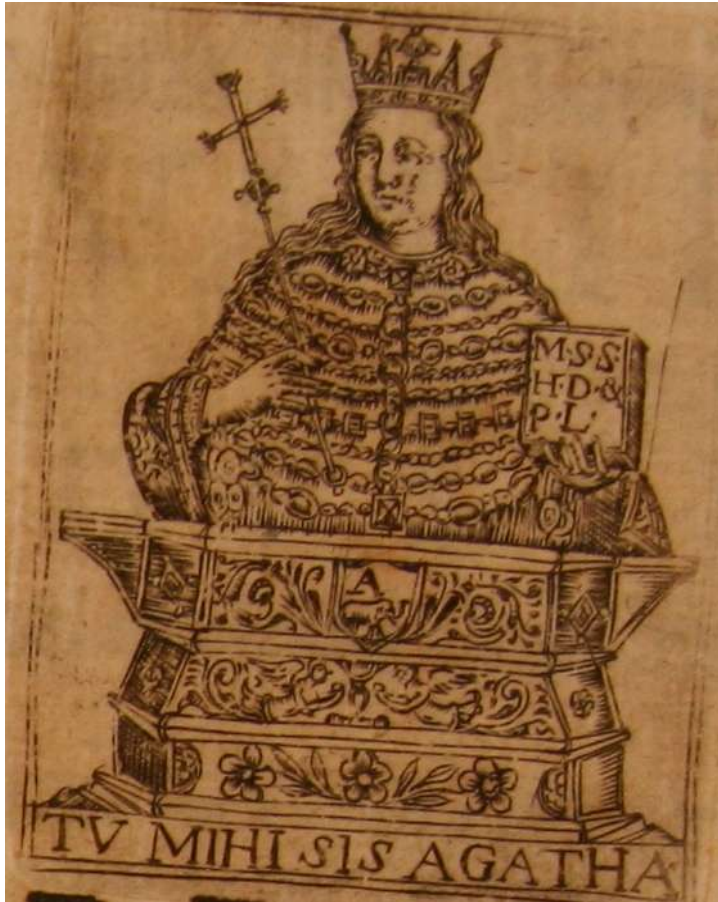 M·S·S·
H·D·&
P·L·
A
TV MIHI SIS AGATHA